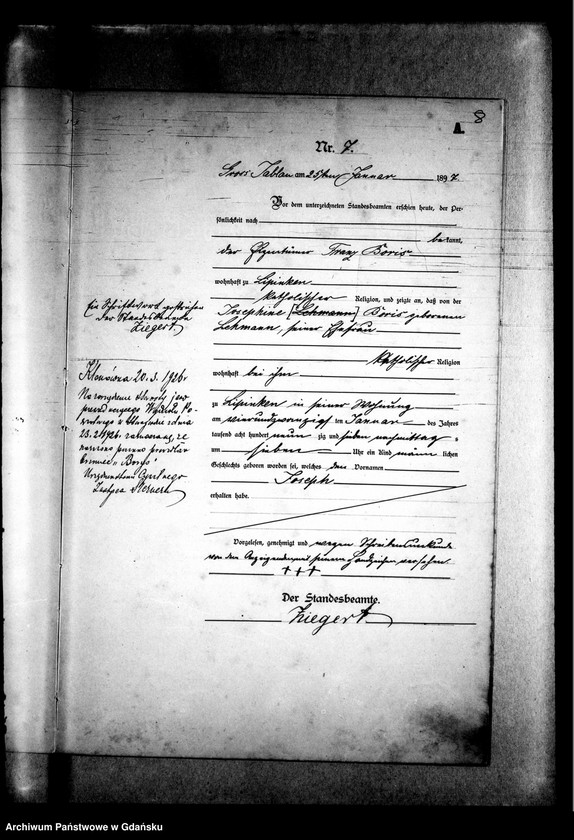 8
A.
Nr. 7.
Gross Jablau am 25ten Januar 1897.
Vor dem unterzeichneten Standesbeamten erschien heute, der Per-
sönlichkeit nach
bekannt,
der Eigentümer Franz Boris
wohnhaft zu Lipinken
katholischer Religion, und zeigte an, daß von der
Josephine [Lehmann] Boris geborenen
Lehmann, seiner Ehefrau
katholischer Religion
wohnhaft bei ihm
zu Lipinken in seiner Wohnung
am vierundzwanzigsten Januar des Jahres
tausend acht hundert neunzig und sieben nachmittag s
um sieben Uhr ein Kind männlichen
Geschlechts geboren worden sei, welches den Vornamen
Joseph
erhalten habe.
Vorgelesen, genehmigt und wegen Schreibensunkunde
von dem Anzeigenden mit seinem Handzeichen versehen
+++
Der Standesbeamte.
Ziegert
Ein Schriftwort gestrichen
Der Standesbeamte
Ziegert
20. 3. 1926 r.
Na zarządzenie
23.2.1926.
nazwisko
brzmieć „Borys”
Urzędnik Stanu Cywilnego
Archiwum Państwowe w Gdańsku